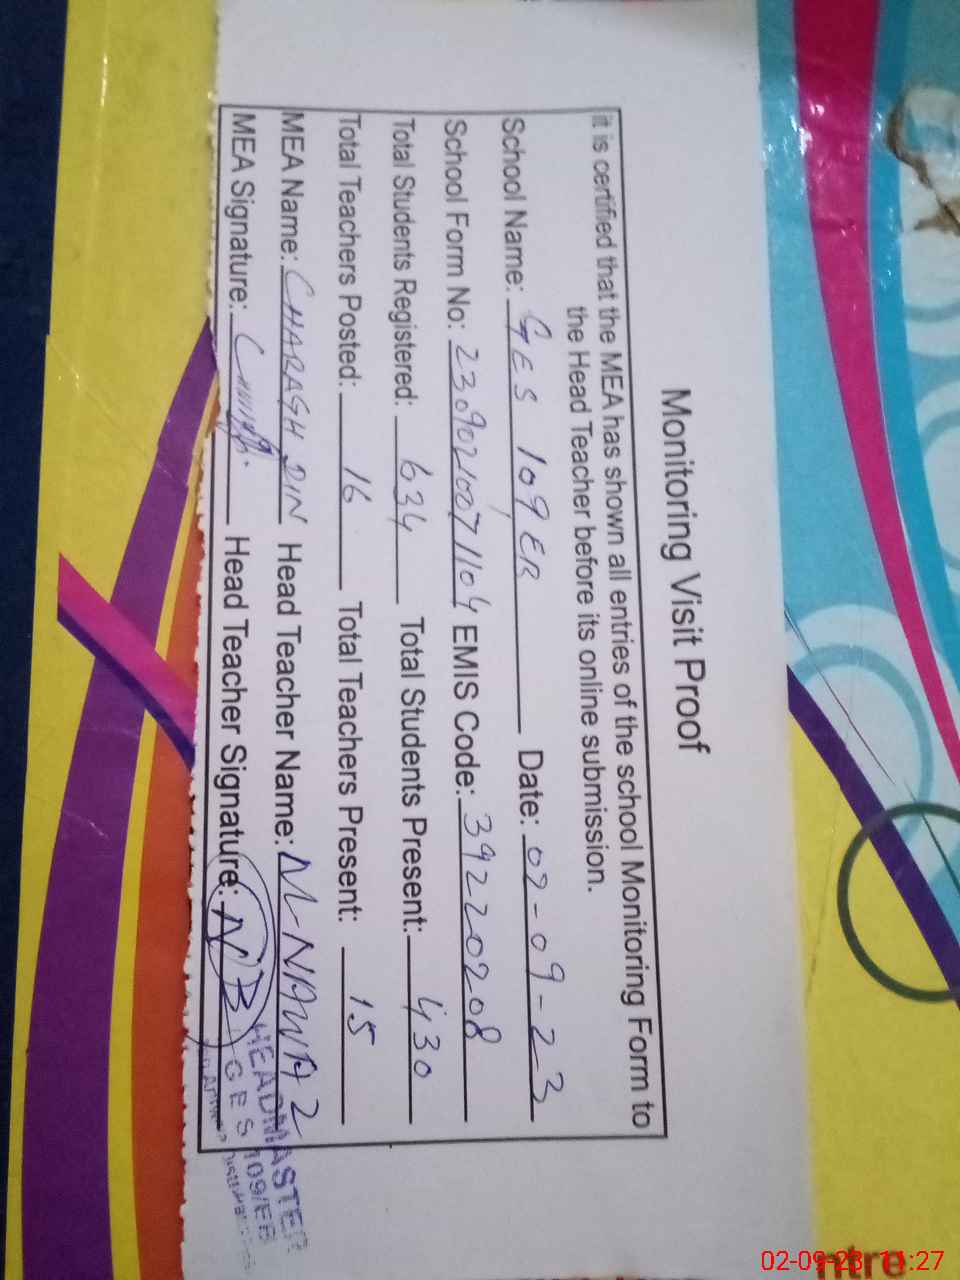 Monitoring Visit Proof
it is certified that the MEA has shown all entries of the school Monitoring Form to
the Head Teacher before its online submission.
School Name: GES 109 ER Date: 02-09-23
School Form No: 23090210071104 EMIS Code: 39220208
Total Students Registered: 634 Total Students Present: 430
Total Teachers Posted: 16 Total Teachers Present: 15
MEA Name: CHARAGH DIN Head Teacher Name: M-NAWAZ
MEA Signature: Head Teacher Signature: NB
HEADMASTER
GES 109/EB
ntre
02-09-23 11:27